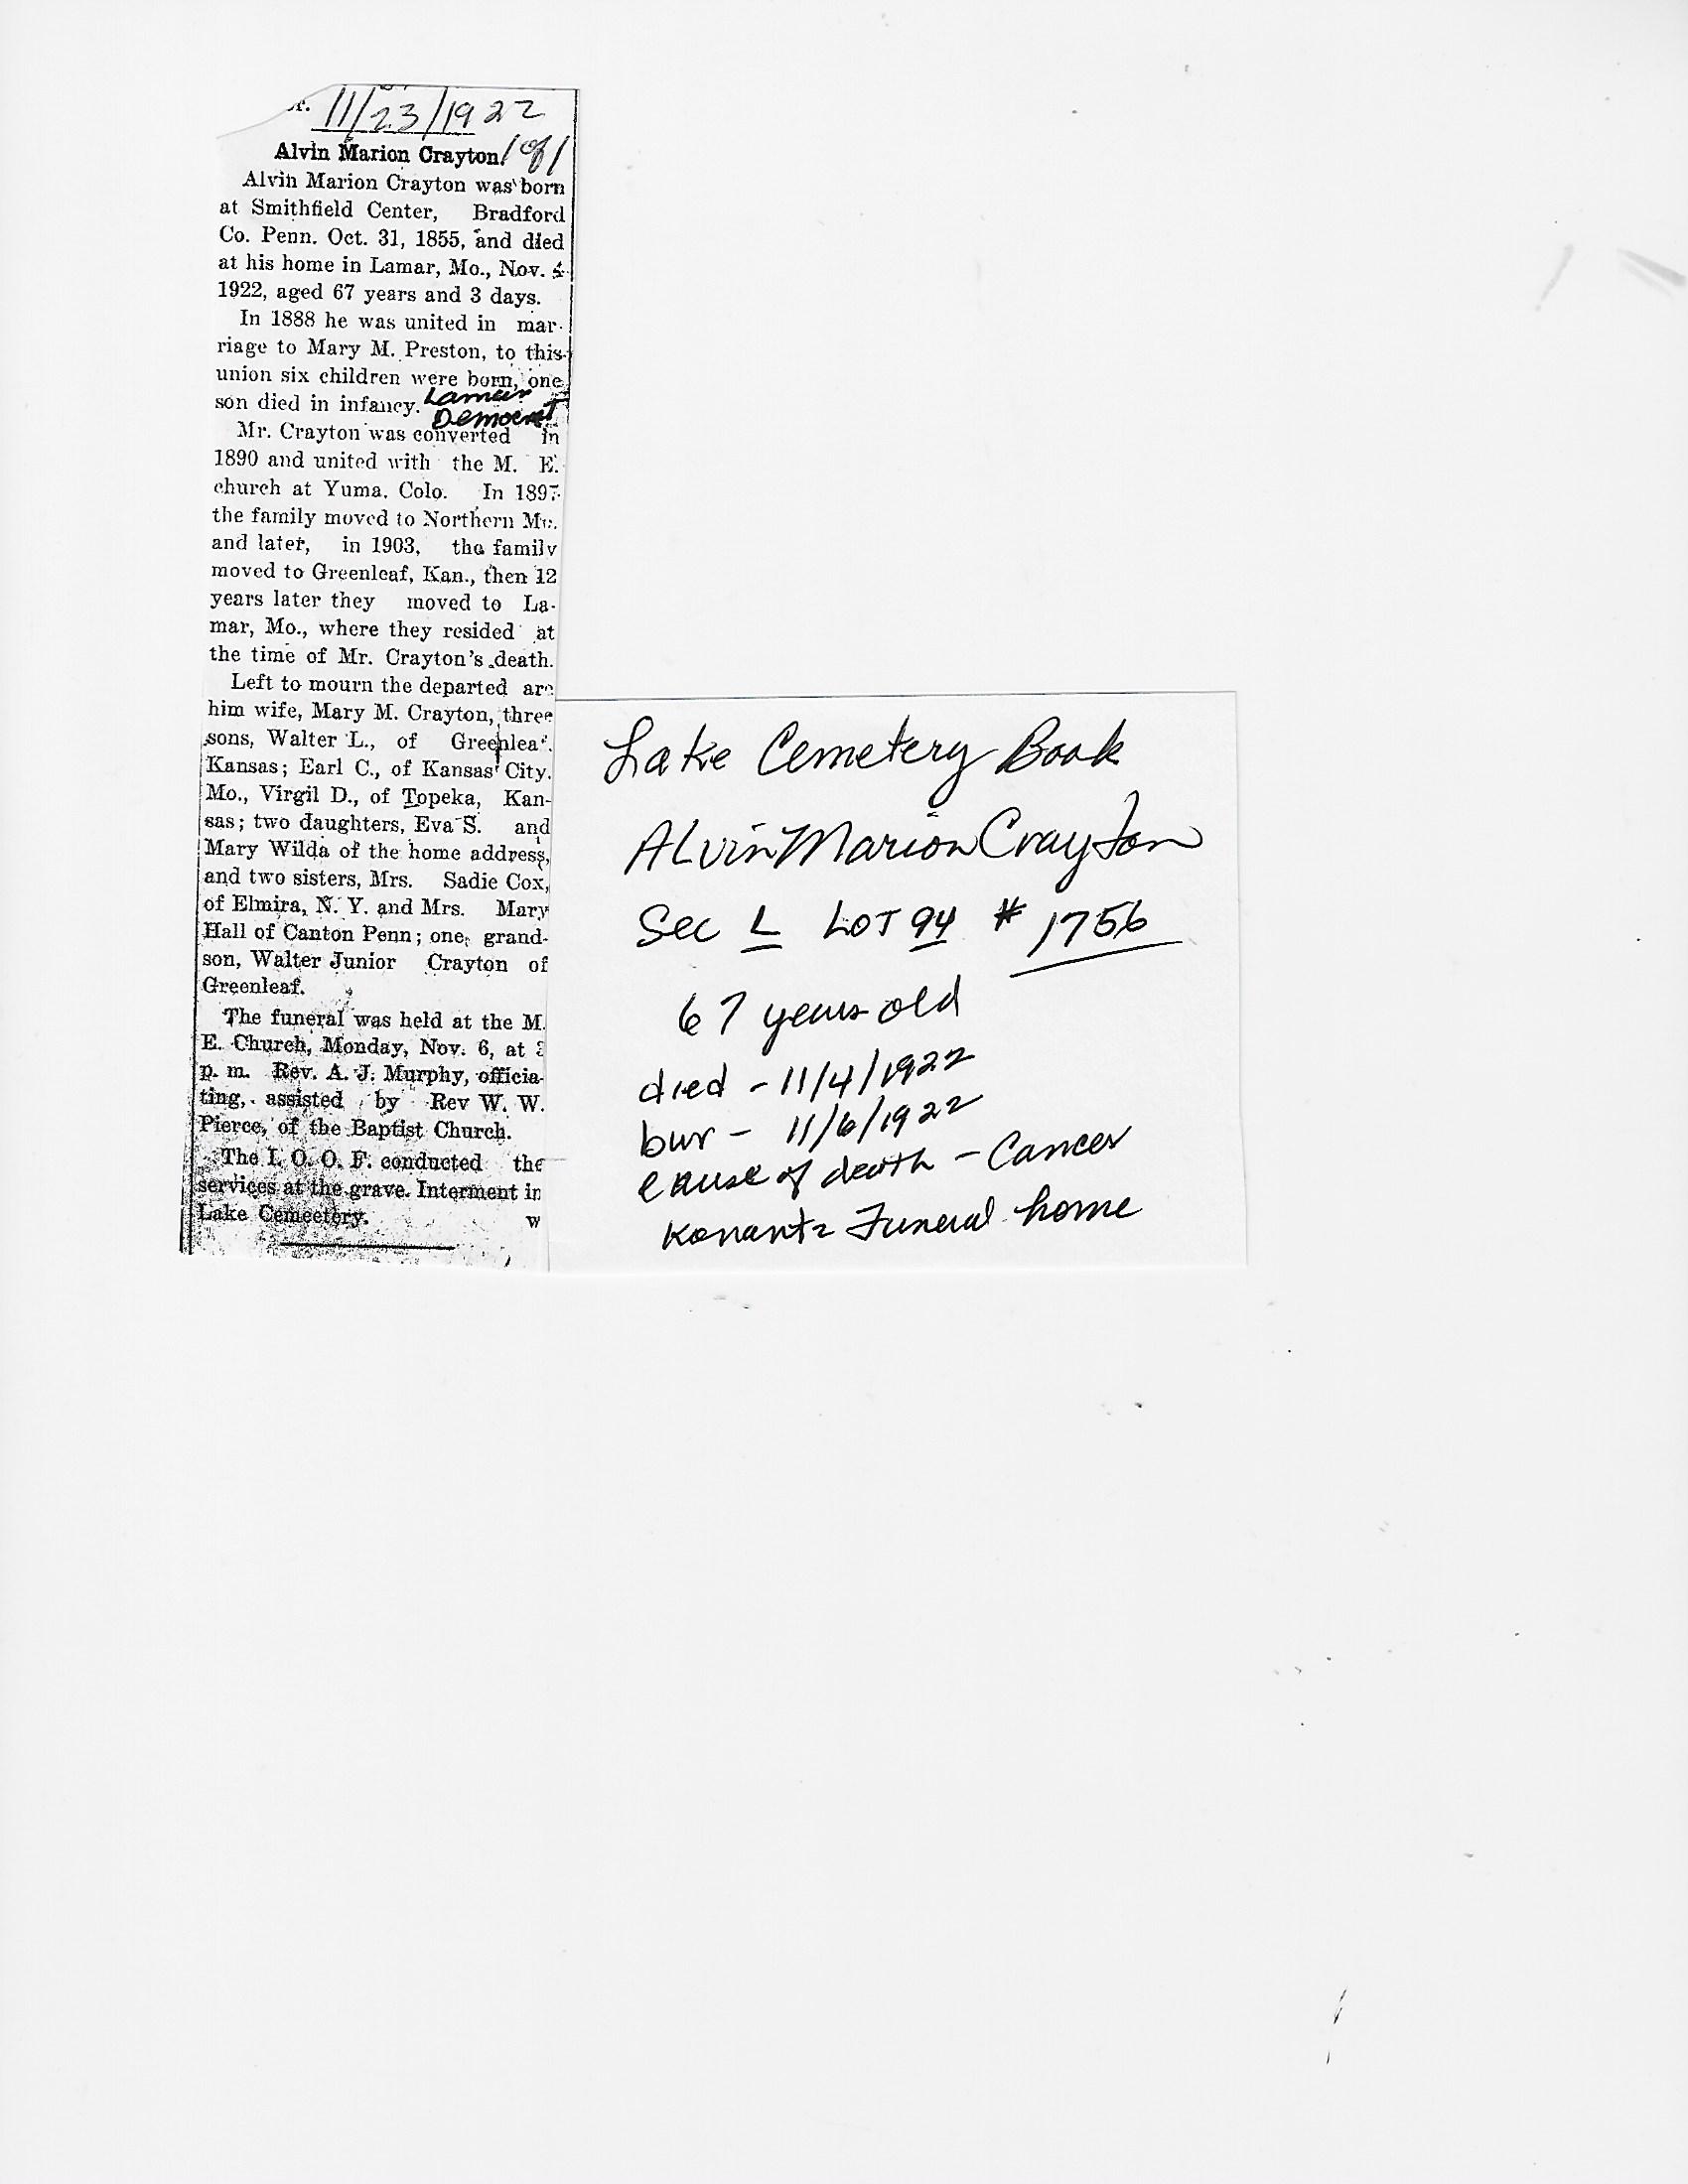 11/23/1922
Alvin Marion Crayton. 1 of 1
Alvin Marion Crayton was born
at Smithfield Center, Bradford
Co. Penn. Oct. 31, 1855, and died
at his home in Lamar, Mo., Nov. 4
1922, aged 67 years and 3 days.
In 1888 he was united in mar-
riage to Mary M. Preston, to this
union six children were born, one
son died in infancy. Lamar
Democrat
Mr. Crayton was converted in
1890 and united with the M. E.
church at Yuma, Colo. In 1897
the family moved to Northern Mo.
and later, in 1903, the family
moved to Greenleaf, Kan., then 12
years later they moved to La-
mar, Mo., where they resided at
the time of Mr. Crayton's death.
Left to mourn the departed are
him wife, Mary M. Crayton, three
sons, Walter L., of Greenleaf,
Kansas; Earl C., of Kansas City,
Mo., Virgil D., of Topeka, Kan-
sas; two daughters, Eva S. and
Mary Wilda of the home address,
and two sisters, Mrs. Sadie Cox,
of Elmira, N. Y. and Mrs. Mary
Hall of Canton Penn; one grand-
son, Walter Junior Crayton of
Greenleaf.
The funeral was held at the M.
E. Church, Monday, Nov. 6, at
p. m. Rev. A. J. Murphy, officia-
ting, assisted by Rev W. W.
Pierce, of the Baptist Church.
The I. O. O. F. conducted the
services at the grave. Interment in
Lake Cemeetery. w
Lake Cemetery Book
Alvin Marion Crayton
Sec L Lot 94 # 1756
67 years old
died - 11/4/1922
bur - 11/6/1922
cause of death - Cancer
Konantz Funeral home